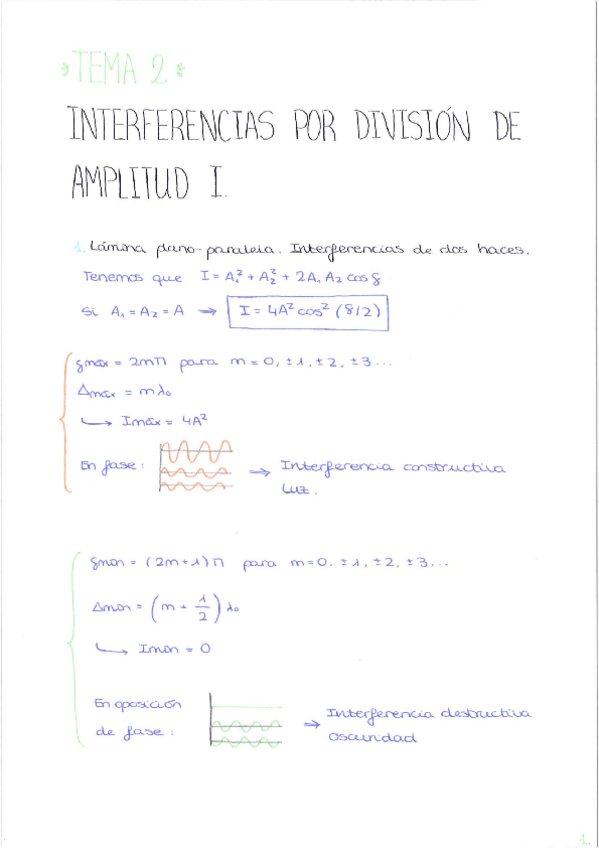 TEMA 2
INTERFERENCIAS POR DIVISIÓN DE
AMPLITUD I.
1. Lámina plano-paralela. Interferencias de dos haces.
Tenemos que I = A₁² + A₂² + 2A₁A₂ cos δ
Si A₁ = A₂ = A → I = 4A² cos² (δ/2)
δmáx = 2mπ para m = 0, ±1, ±2, ±3...
Δmáx = mλ₀
↳ Imáx = 4A²
En fase: → Interferencia constructiva
Luz.
δmín = (2m+1)π para m=0, ±1, ±2, ±3...
Δmín = (m + 1/2) λ₀
↳ Imín = 0
En oposición
de fase: → Interferencia destructiva
oscuridad
1.